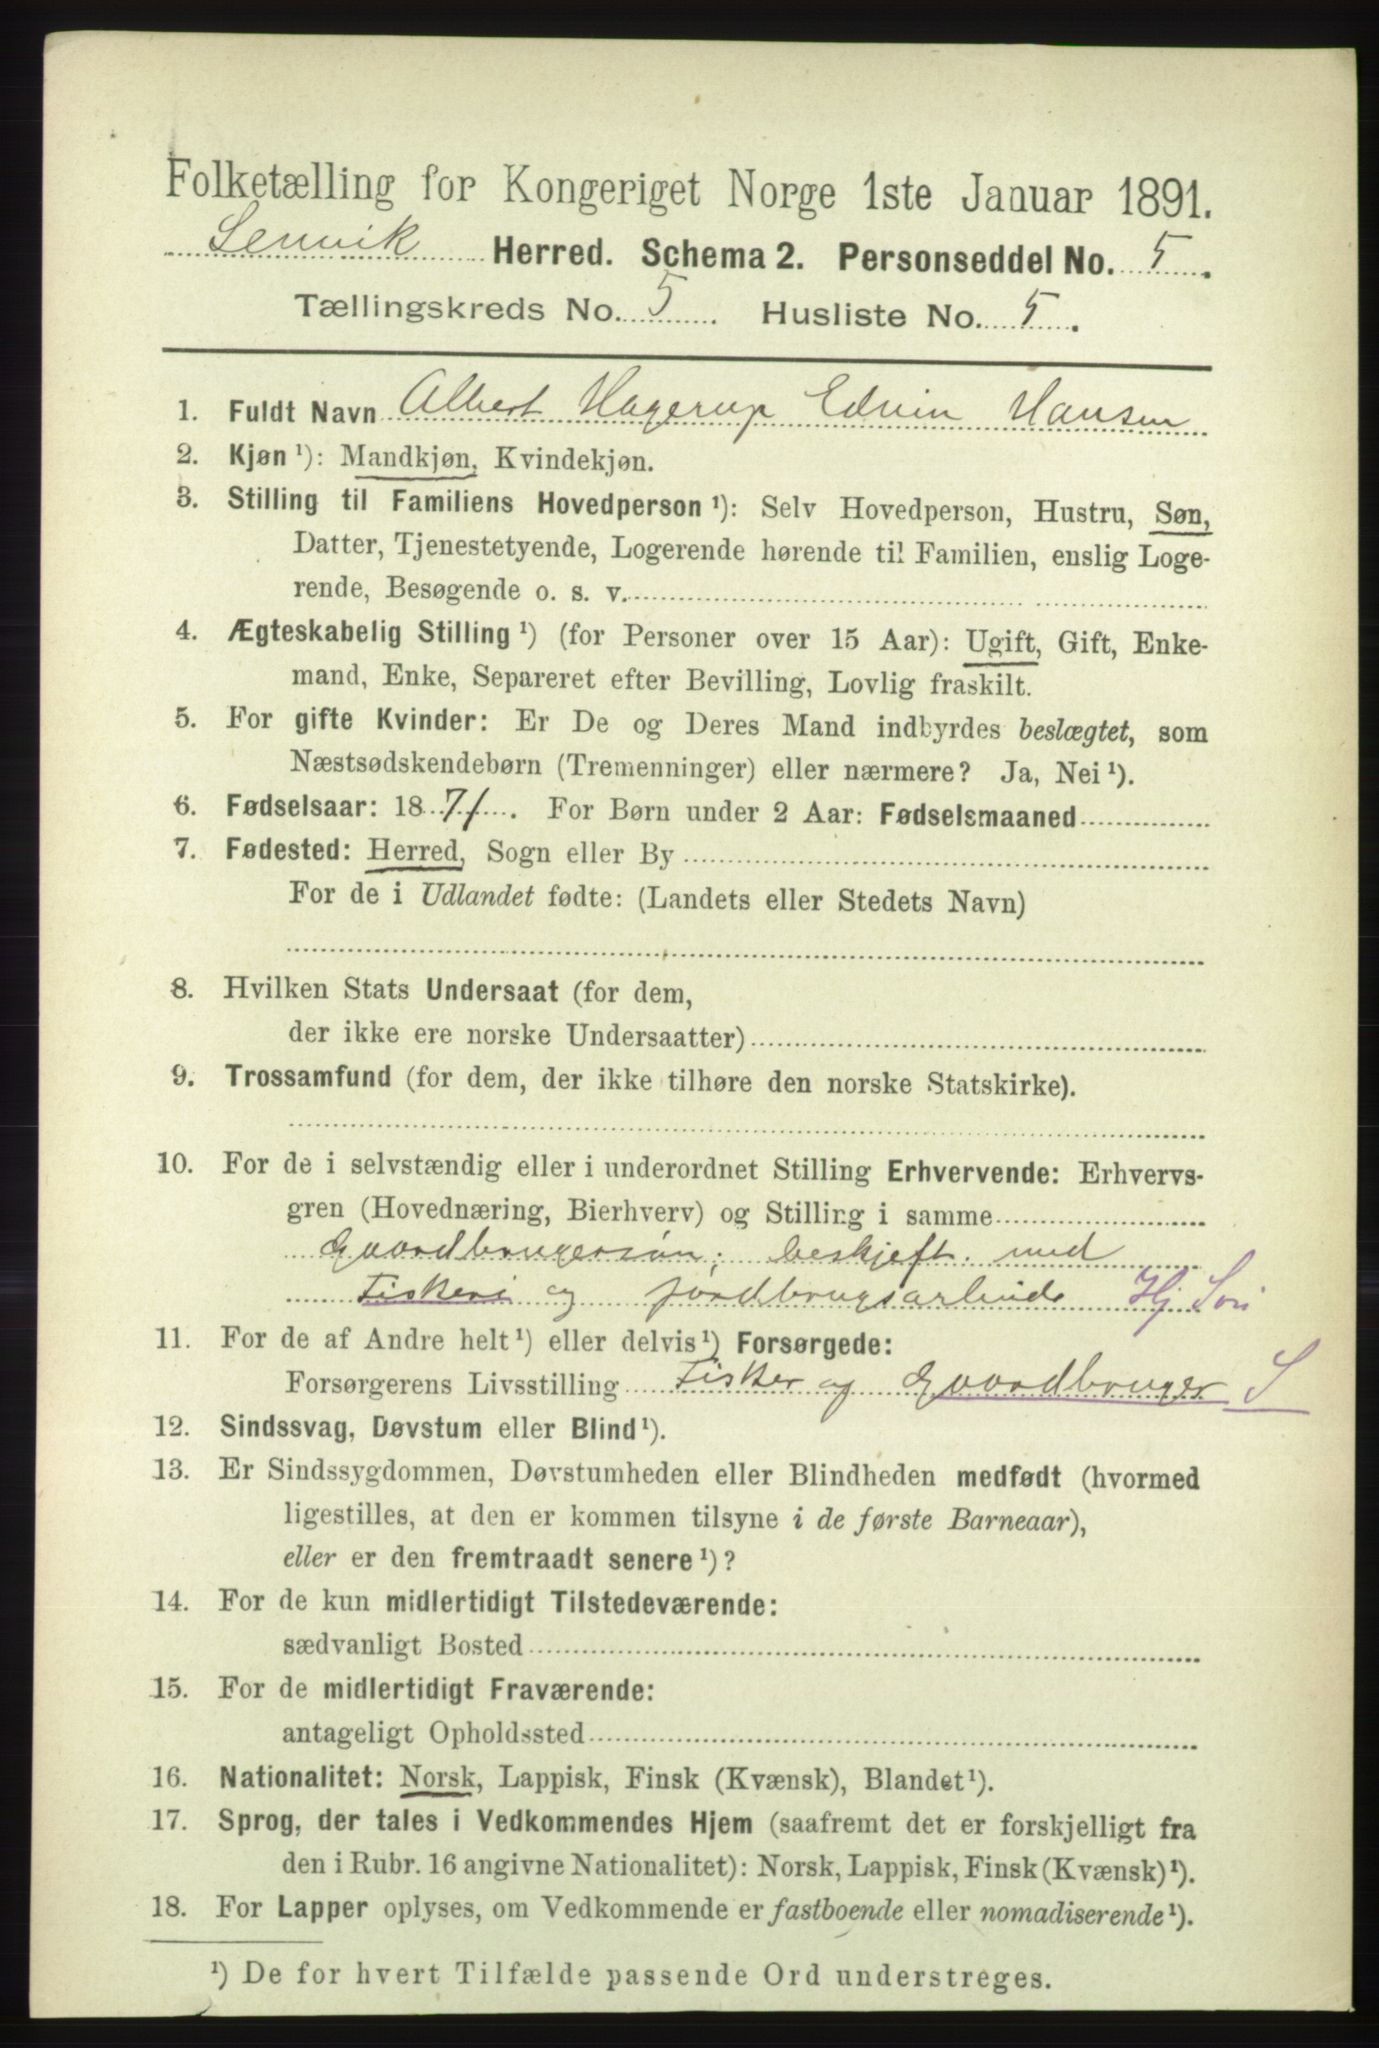 Folketælling for Kongeriget Norge 1ste Januar 1891.
Lenvik Herred. Schema 2. Personseddel No. 5.
Tællingskreds No. 5. Husliste No. 5.
1. Fuldt Navn Albert Hagerup Edvin Hansen
2. Kjøn ¹): Mandkjøn, Kvindekjøn.
3. Stilling til Familiens Hovedperson ¹): Selv Hovedperson, Hustru, Søn,
Datter, Tjenestetyende, Logerende hørende til Familien, enslig Loge-
rende, Besøgende o. s. v.
4. Ægteskabelig Stilling ¹) (for Personer over 15 Aar): Ugift, Gift, Enke-
mand, Enke, Separeret efter Bevilling, Lovlig fraskilt.
5. For gifte Kvinder: Er De og Deres Mand indbyrdes beslægtet, som
Næstsødskendebørn (Tremenninger) eller nærmere? Ja, Nei ¹).
6. Fødselsaar: 1871. For Børn under 2 Aar: Fødselsmaaned
7. Fødested: Herred, Sogn eller By
For de i Udlandet fødte: (Landets eller Stedets Navn)
8. Hvilken Stats Undersaat (for dem,
der ikke ere norske Undersaatter)
9. Trossamfund (for dem, der ikke tilhøre den norske Statskirke).
10. For de i selvstændig eller i underordnet Stilling Erhvervende: Erhvervs-
gren (Hovednæring, Bierhverv) og Stilling i samme
Gaardbrugersøn; beskjeft. med
Fiskeri og jordbrugsarbeide Hj Søn
11. For de af Andre helt ¹) eller delvis ¹) Forsørgede:
Forsørgerens Livsstilling Fisker og Gaardbruger S
12. Sindssvag, Døvstum eller Blind ¹).
13. Er Sindssygdommen, Døvstumheden eller Blindheden medfødt (hvormed
ligestilles, at den er kommen tilsyne i de første Barneaar),
eller er den fremtraadt senere ¹)?
14. For de kun midlertidigt Tilstedeværende:
sædvanligt Bosted
15. For de midlertidigt Fraværende:
antageligt Opholdssted
16. Nationalitet: Norsk, Lappisk, Finsk (Kvænsk), Blandet ¹).
17. Sprog, der tales i Vedkommendes Hjem (saafremt det er forskjelligt fra
den i Rubr. 16 angivne Nationalitet): Norsk, Lappisk, Finsk (Kvænsk) ¹).
18. For Lapper oplyses, om Vedkommende er fastboende eller nomadiserende ¹).
¹) De for hvert Tilfælde passende Ord understreges.